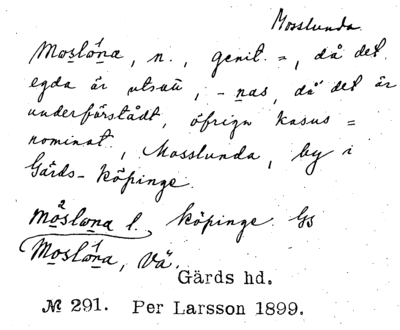 Mosslunda.
Moslöna, n., genit. =, då det
egda är utsatt, -nas, då det är
underförstådt, öfriga kasus =
nominat., Mosslunda, by i
Gärds-Köpinge.
Möslona l. Köpinge Gs
Moslöna, Vä.
Gärds hd.
№ 291. Per Larsson 1899.